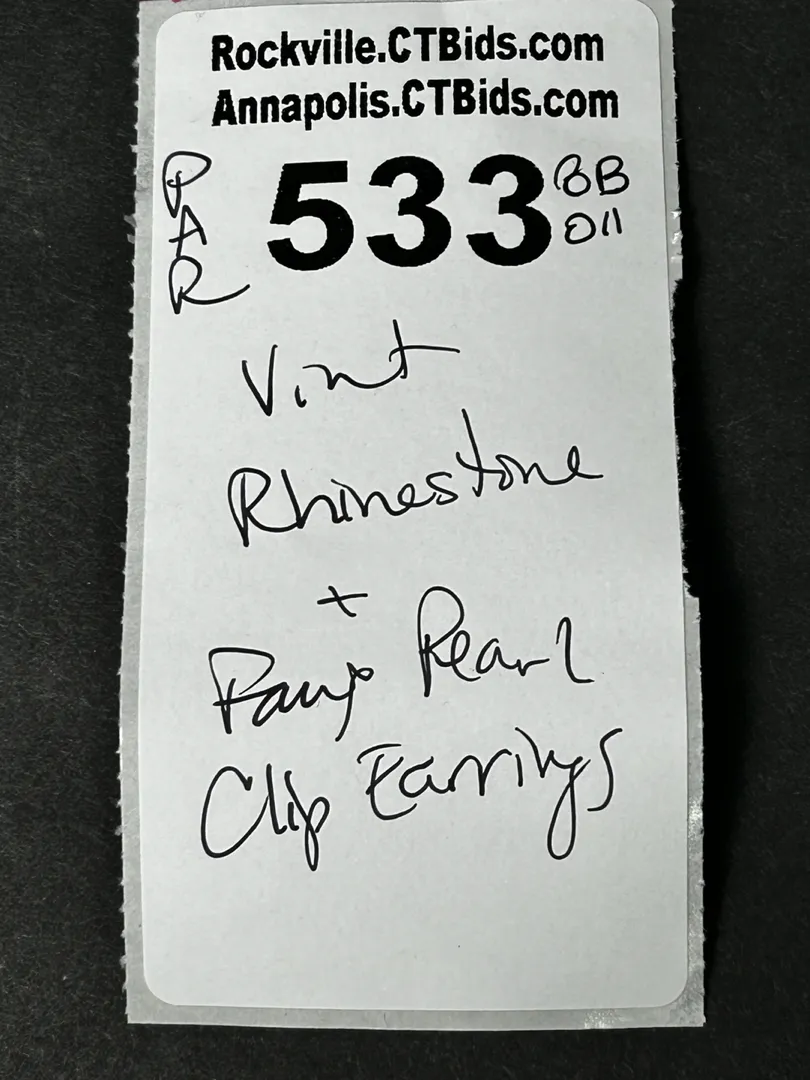 Rockville.CTBids.com
Annapolis.CTBids.com
PAR
533
BB
011
Vint
Rhinestone
+
Faux Pearl
Clip Earrings